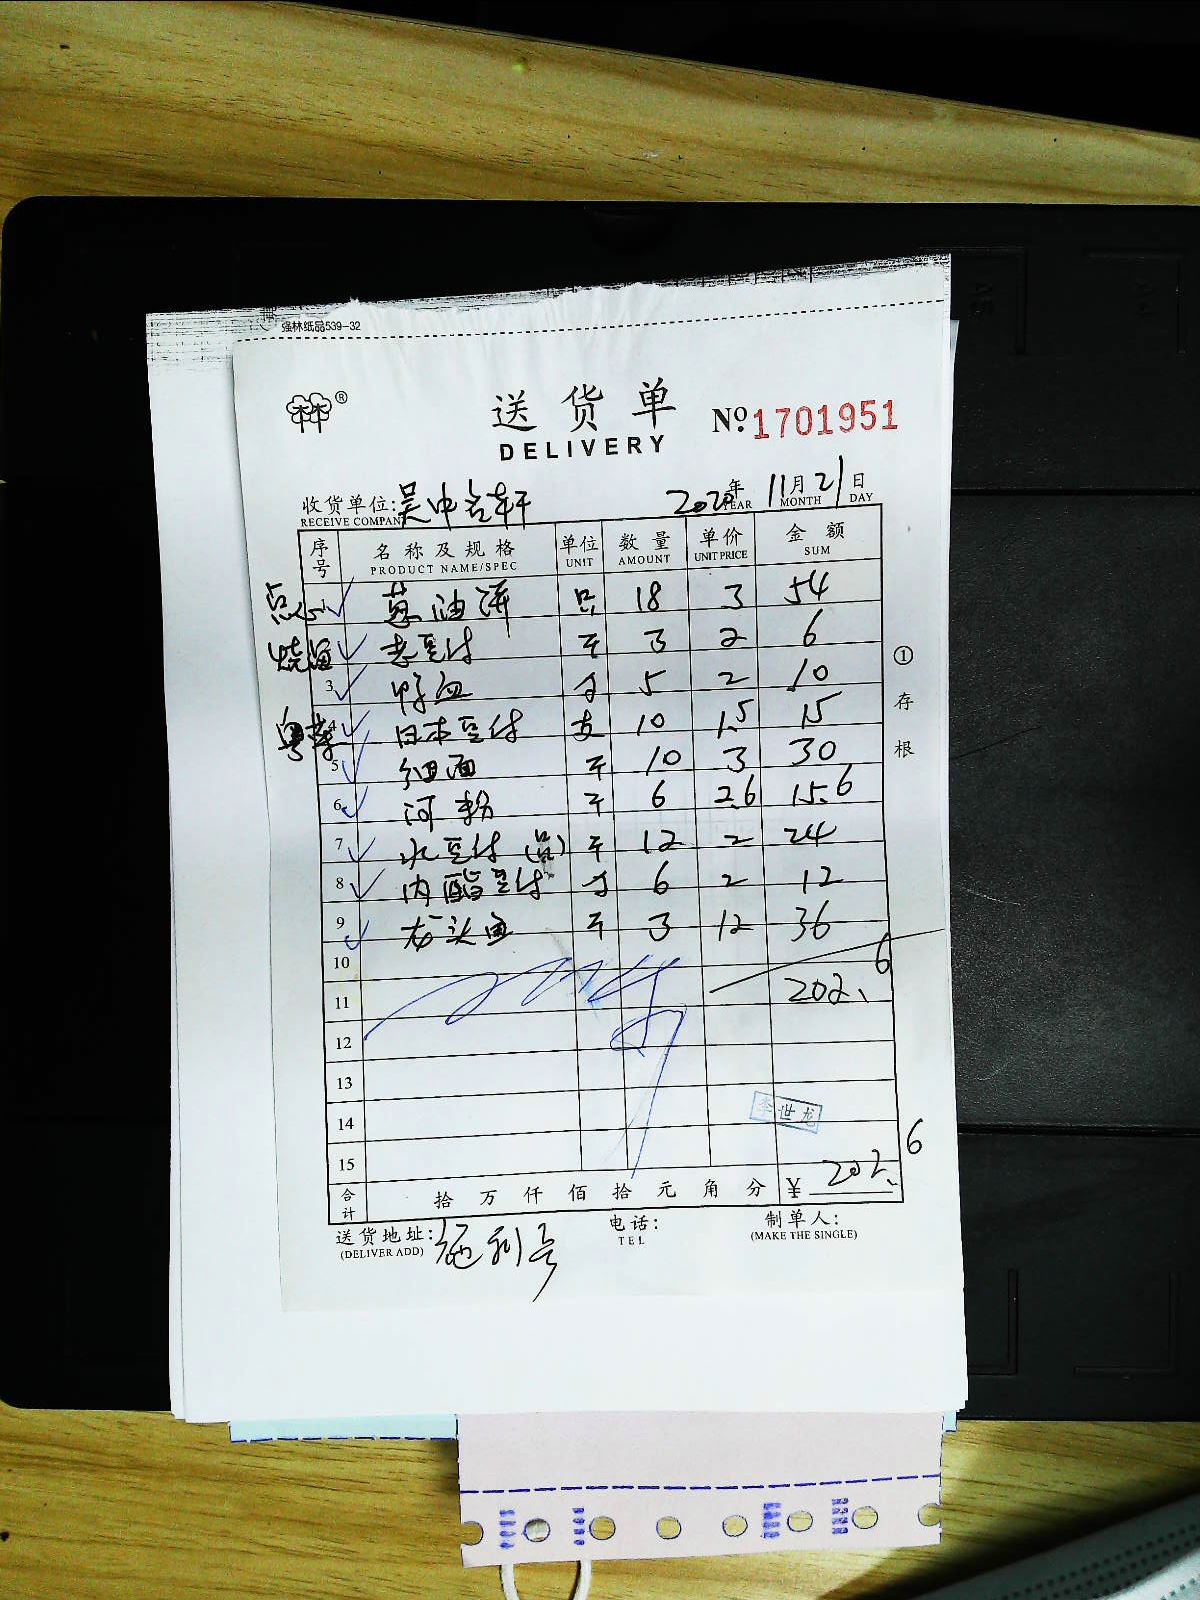 强林纸品539-32
林林®
送货单 Nº:1701951
DELIVERY
收货单位:吴中宫轩 2020年 11月 21日
RECEIVE COMPANY YEAR MONTH DAY
序号 名称及规格 单位 数量 单价 金额
PRODUCT NAME/SPEC UNIT AMOUNT UNIT PRICE SUM
点心 葱油饼 只 18 3 54
烧 老豆付 斤 3 2 6
3 鸭血 寸 5 2 10
粤菜 4 日本豆付 支 10 1.5 15
5 细面 斤 10 3 30
6 河粉 斤 6 2.6 15.6
7 水豆付 斤 12 2 24
8 内酯豆付 寸 6 2 12
9 龙头鱼 斤 3 12 36
10
11 202.6
12
13
14 李世龙
15
合计 拾万仟佰拾元角分 ¥ 202.6
送货地址: 利号 电话: 制单人:
(DELIVER ADD) TEL (MAKE THE SINGLE)
①存根